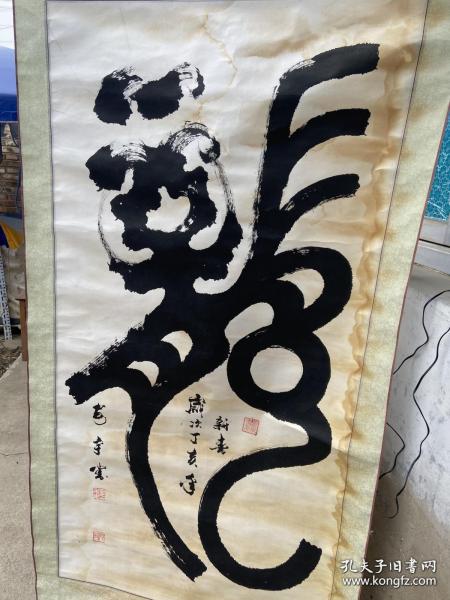 龍
歲次丁亥年
新春
孔夫子旧书网
www.kongfz.com